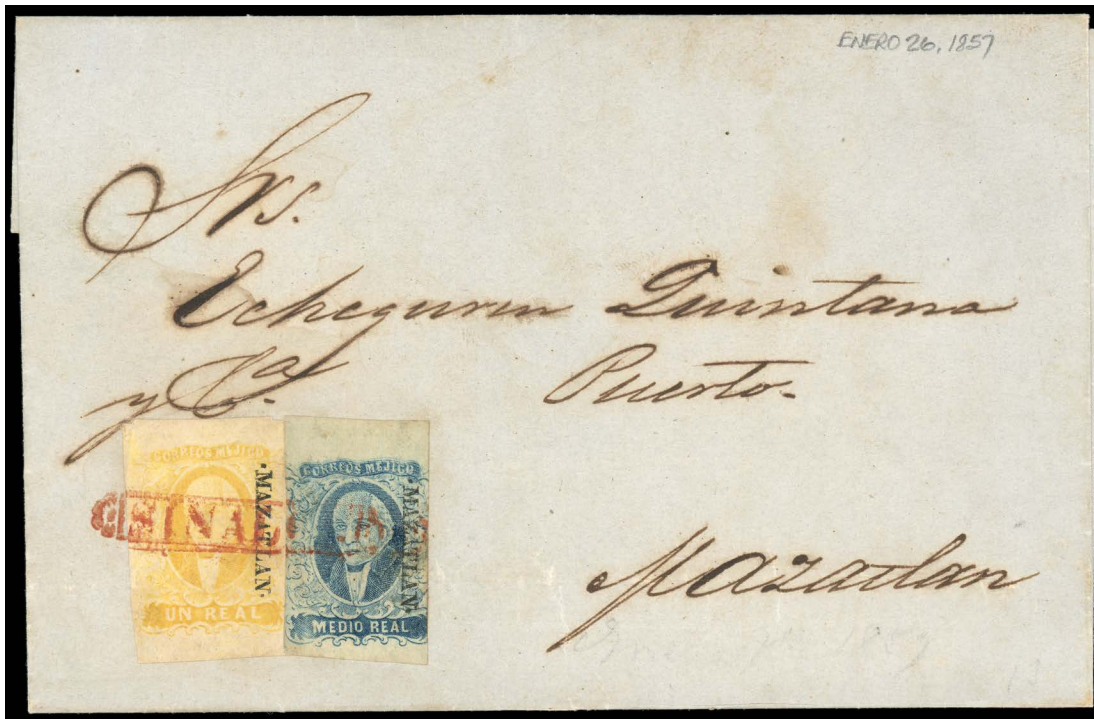 ENERO 26, 1857
Srs.
Echeguren Quintana
y Ca.
Puerto.
CORREOS MEJICO
MAZATLAN
UN REAL
CORREOS MEJICO
MAZATLAN
MEDIO REAL
SINALOA
Mazatlan